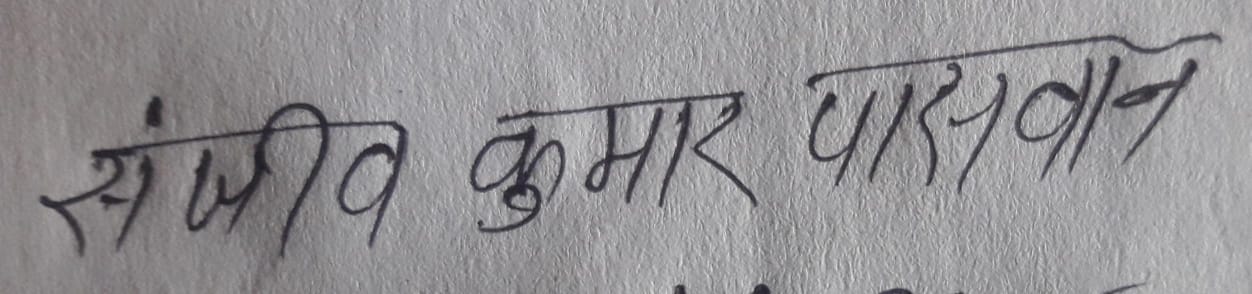 संजीव कुमार पासवान